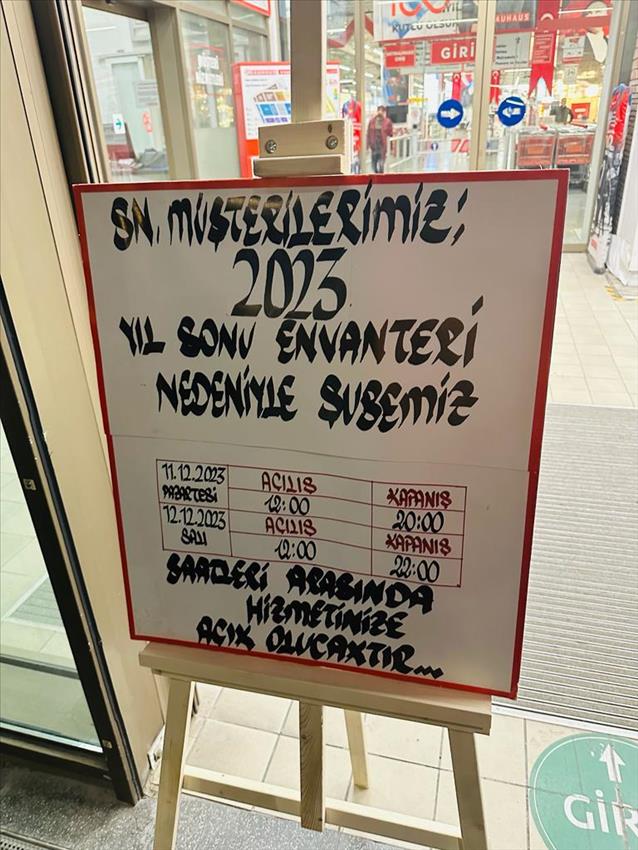 100. YIL
KUTLU OLSUN
BAUHAUS
GİRİ
SN. MÜŞTERİLERİMİZ;
2023
YIL SONU ENVANTERİ
NEDENİYLE ŞUBEMİZ
11.12.2023 PAZARTESİ AÇILIŞ 12:00 KAPANIŞ 20:00
12.12.2023 SALI AÇILIŞ 12:00 KAPANIŞ 22:00
SAATLERİ ARASINDA
HİZMETİNİZE
AÇIK OLUCAKTIR...
GİR